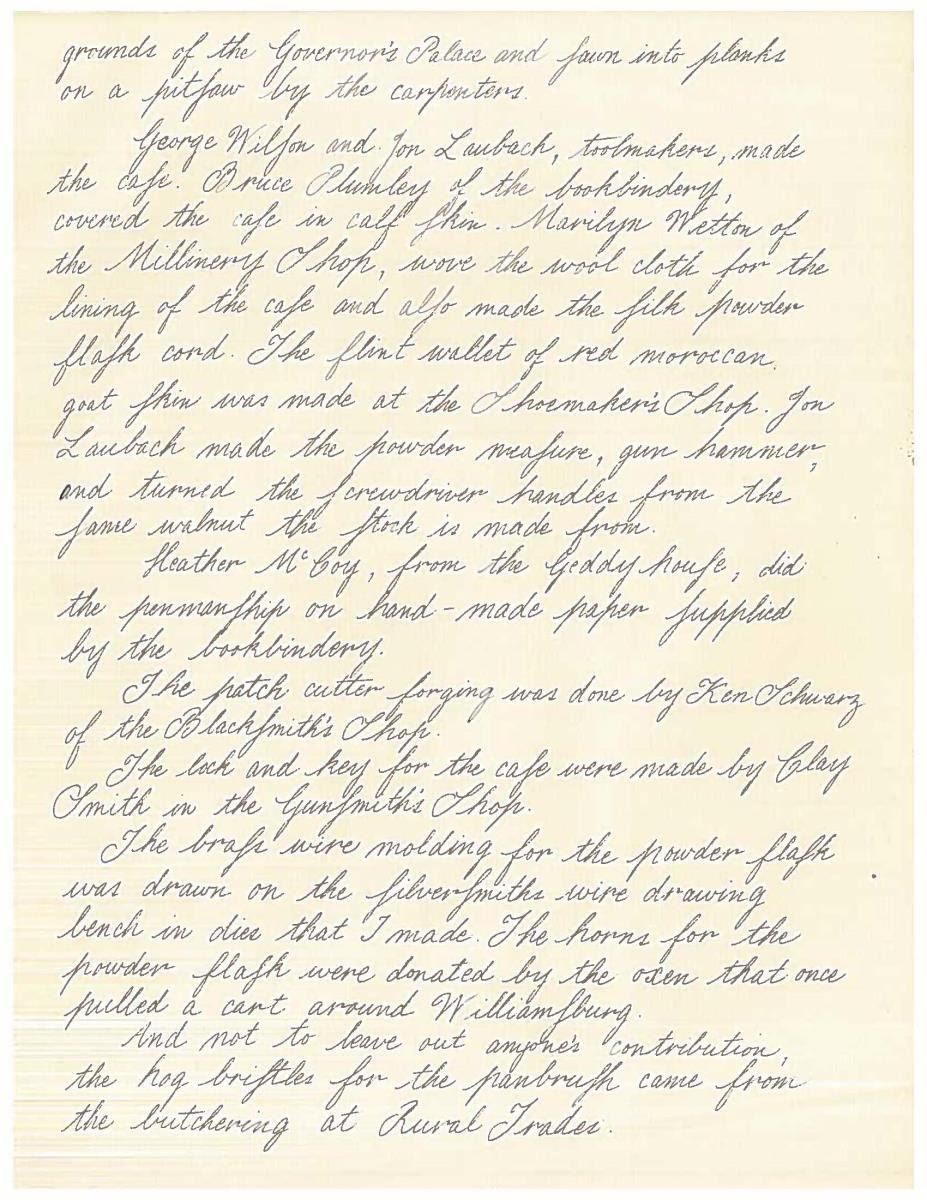 grounds of the Governor's Palace and ſawn into planks
on a pitſaw by the carpenters.
George Wilſon and Jon Laubach, toolmakers, made
the caſe. Bruce Plumley of the bookbindery,
covered the caſe in calf ſkin. Marilyn Wetton of
the Millinery Shop, wove the wool cloth for the
lining of the caſe and alſo made the ſilk powder
flaſk cord. The flint wallet of red moroccan
goat ſkin was made at the Shoemaker's Shop. Jon
Laubach made the powder meaſure, gun hammer,
and turned the ſcrewdriver handles from the
ſame walnut the ſtock is made from.
Heather McCoy, from the Geddy houſe, did
the penmanſhip on hand-made paper ſupplied
by the bookbindery.
The patch cutter forging was done by Ken Schwarz
of the Blackſmith's Shop.
The lock and key for the caſe were made by Clay
Smith in the Gunſmith's Shop.
The braſs wire molding for the powder flaſk
was drawn on the ſilverſmiths wire drawing
bench in dies that I made. The horns for the
powder flaſk were donated by the oxen that once
pulled a cart around Williamſburg.
And not to leave out anyone's contribution,
the hog briſtles for the panbruſh came from
the butchering at Rural Trades.